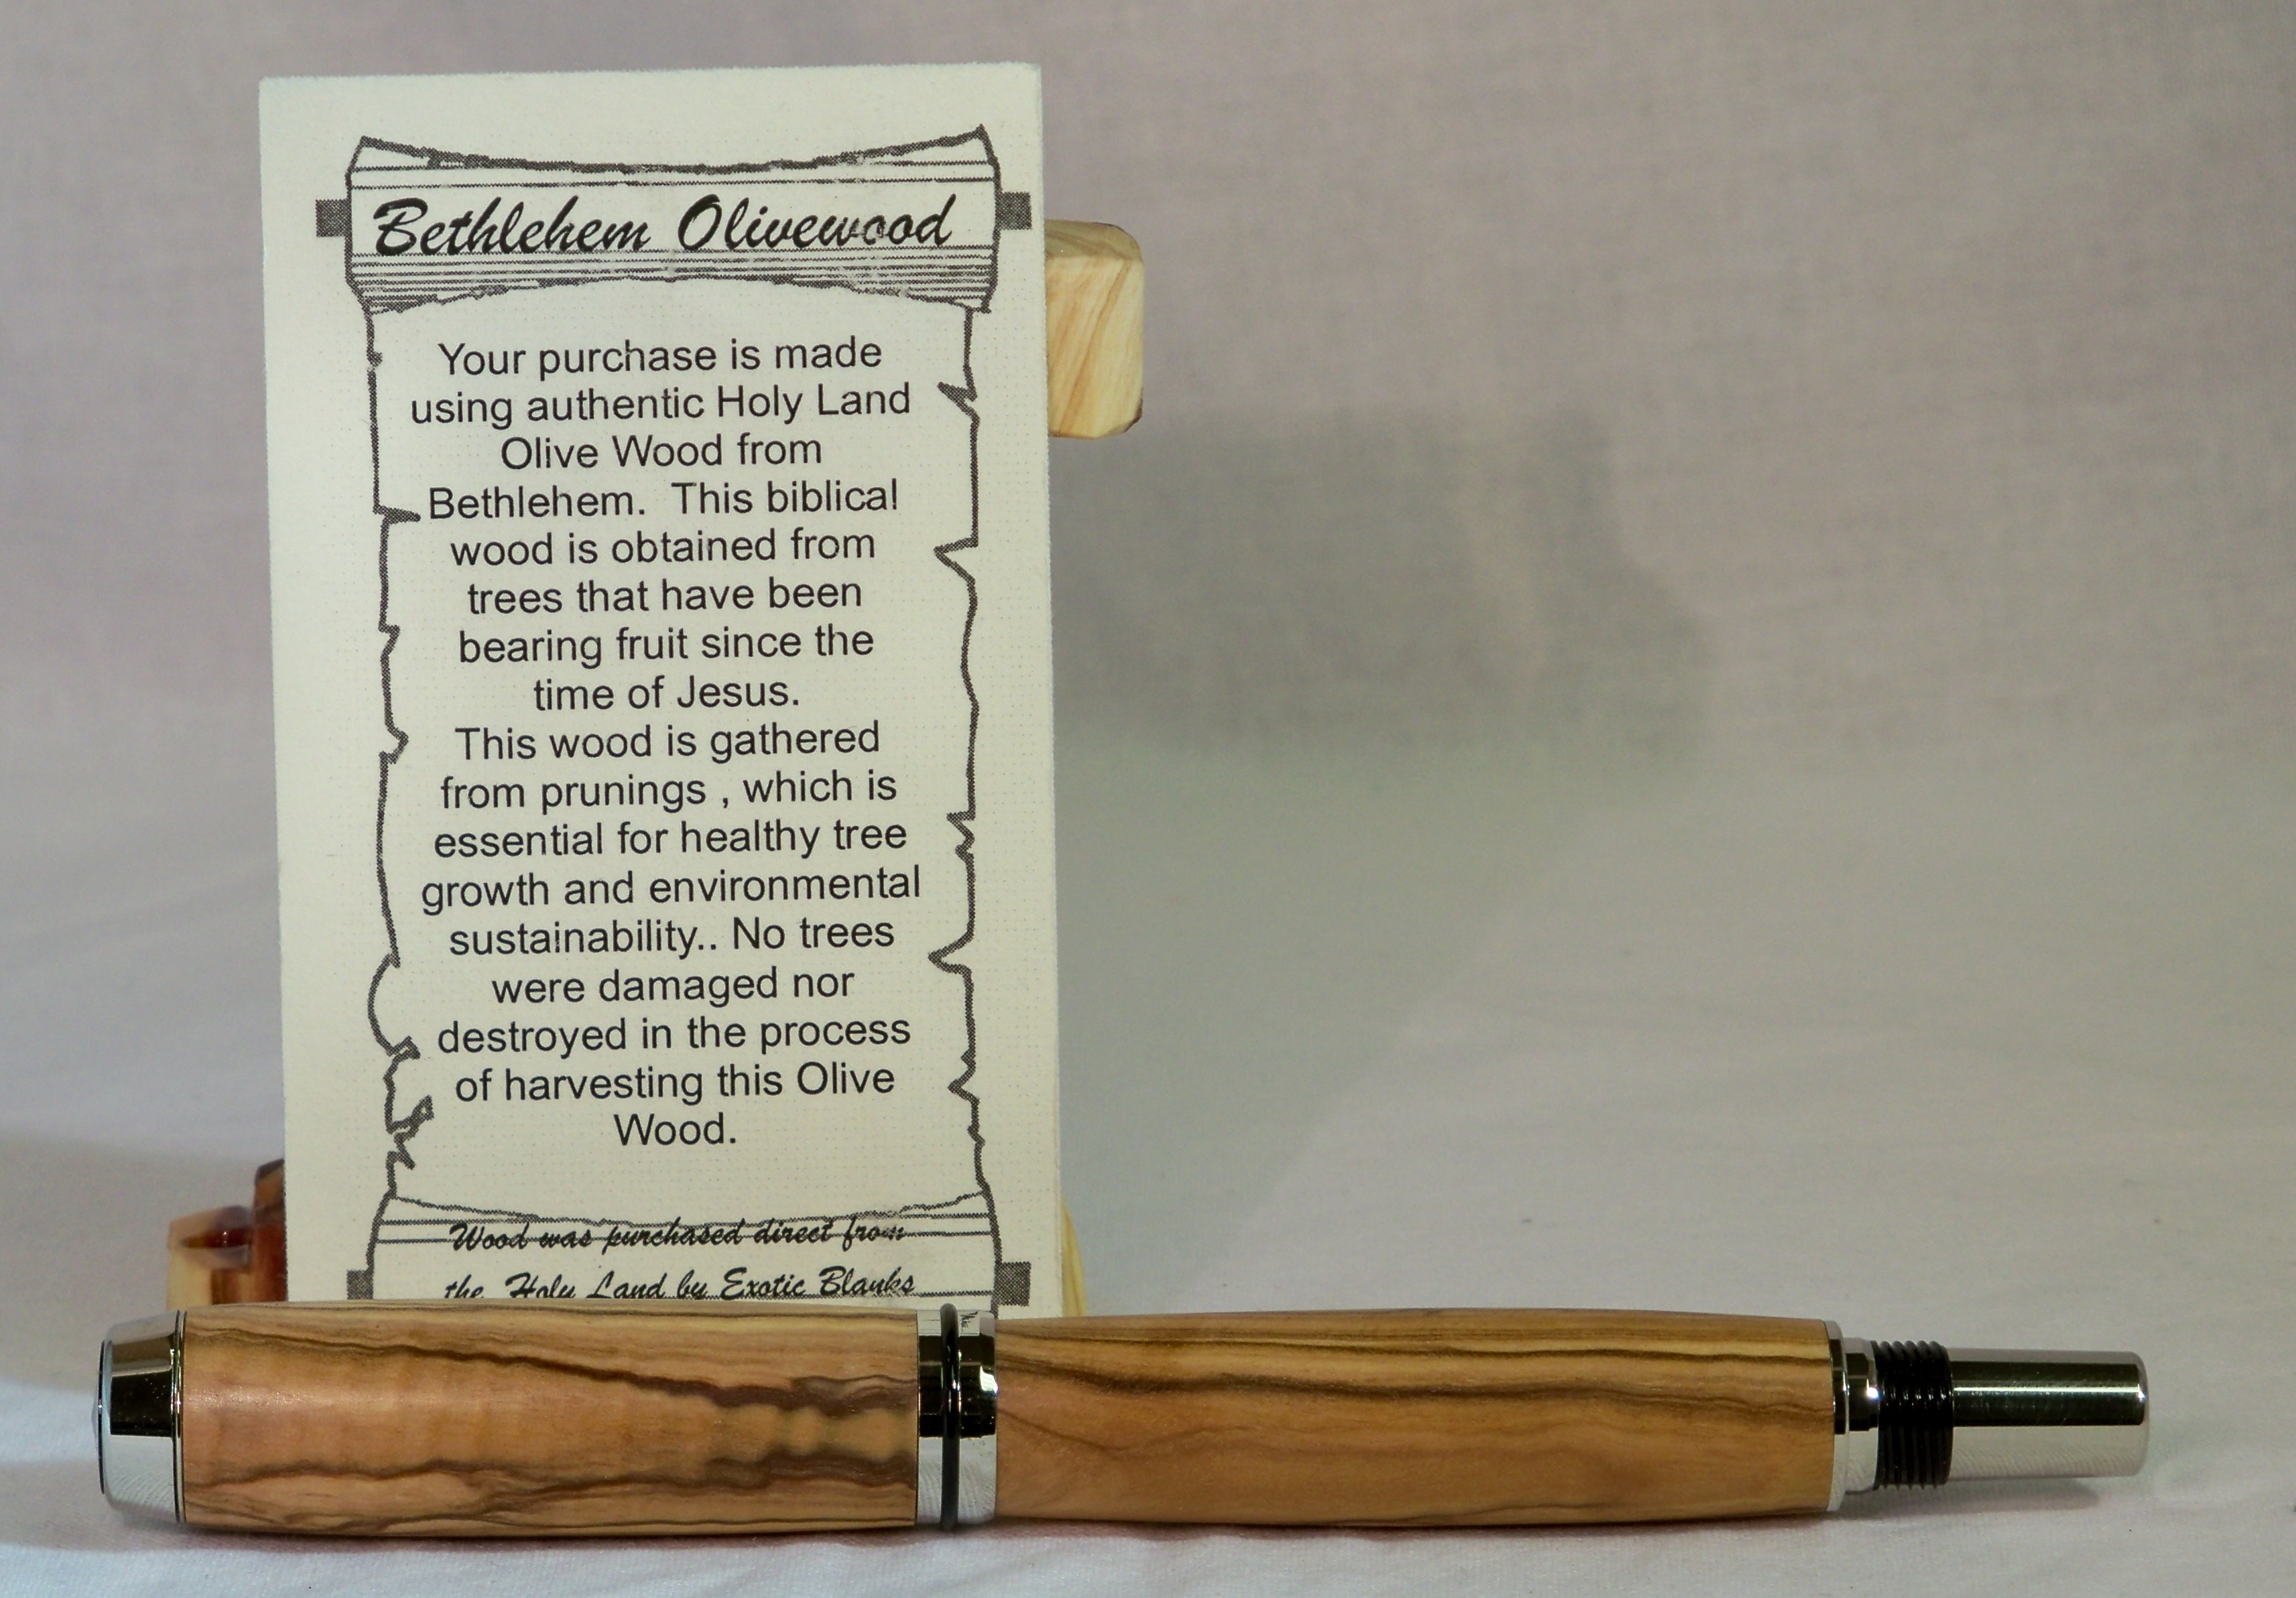 Bethlehem Olivewood
Your purchase is made
using authentic Holy Land
Olive Wood from
Bethlehem. This biblical
wood is obtained from
trees that have been
bearing fruit since the
time of Jesus.
This wood is gathered
from prunings , which is
essential for healthy tree
growth and environmental
sustainability.. No trees
were damaged nor
destroyed in the process
of harvesting this Olive
Wood.
Wood was purchased direct from
the Holy Land by Exotic Blanks